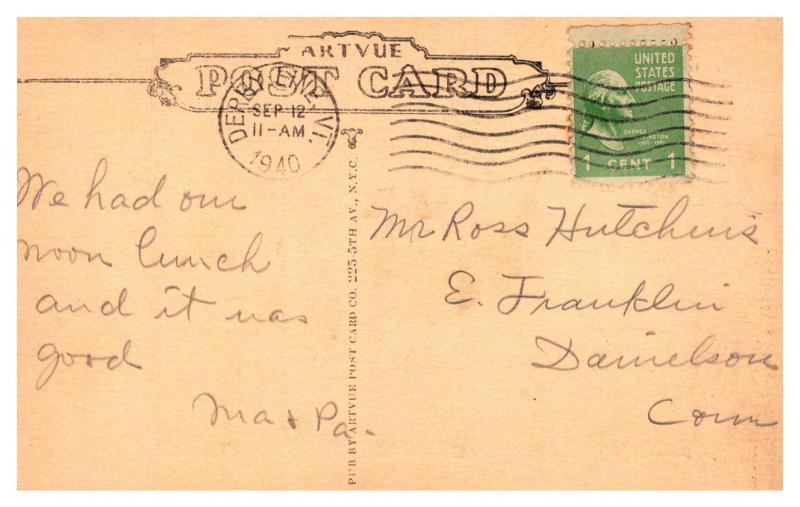 ARTVUE
POST CARD
DERBY LINE, VT.
SEP 12
11-AM
1940
UNITED
STATES
POSTAGE
GEORGE
WASHINGTON
1 CENT 1
We had our
noon lunch
and it was
good
Ma & Pa.
PUB BY ARTVUE POST CARD CO. 225-5TH AV., N.Y.C.
Mr Ross Hutchins
E. Franklin
Danielson
Conn